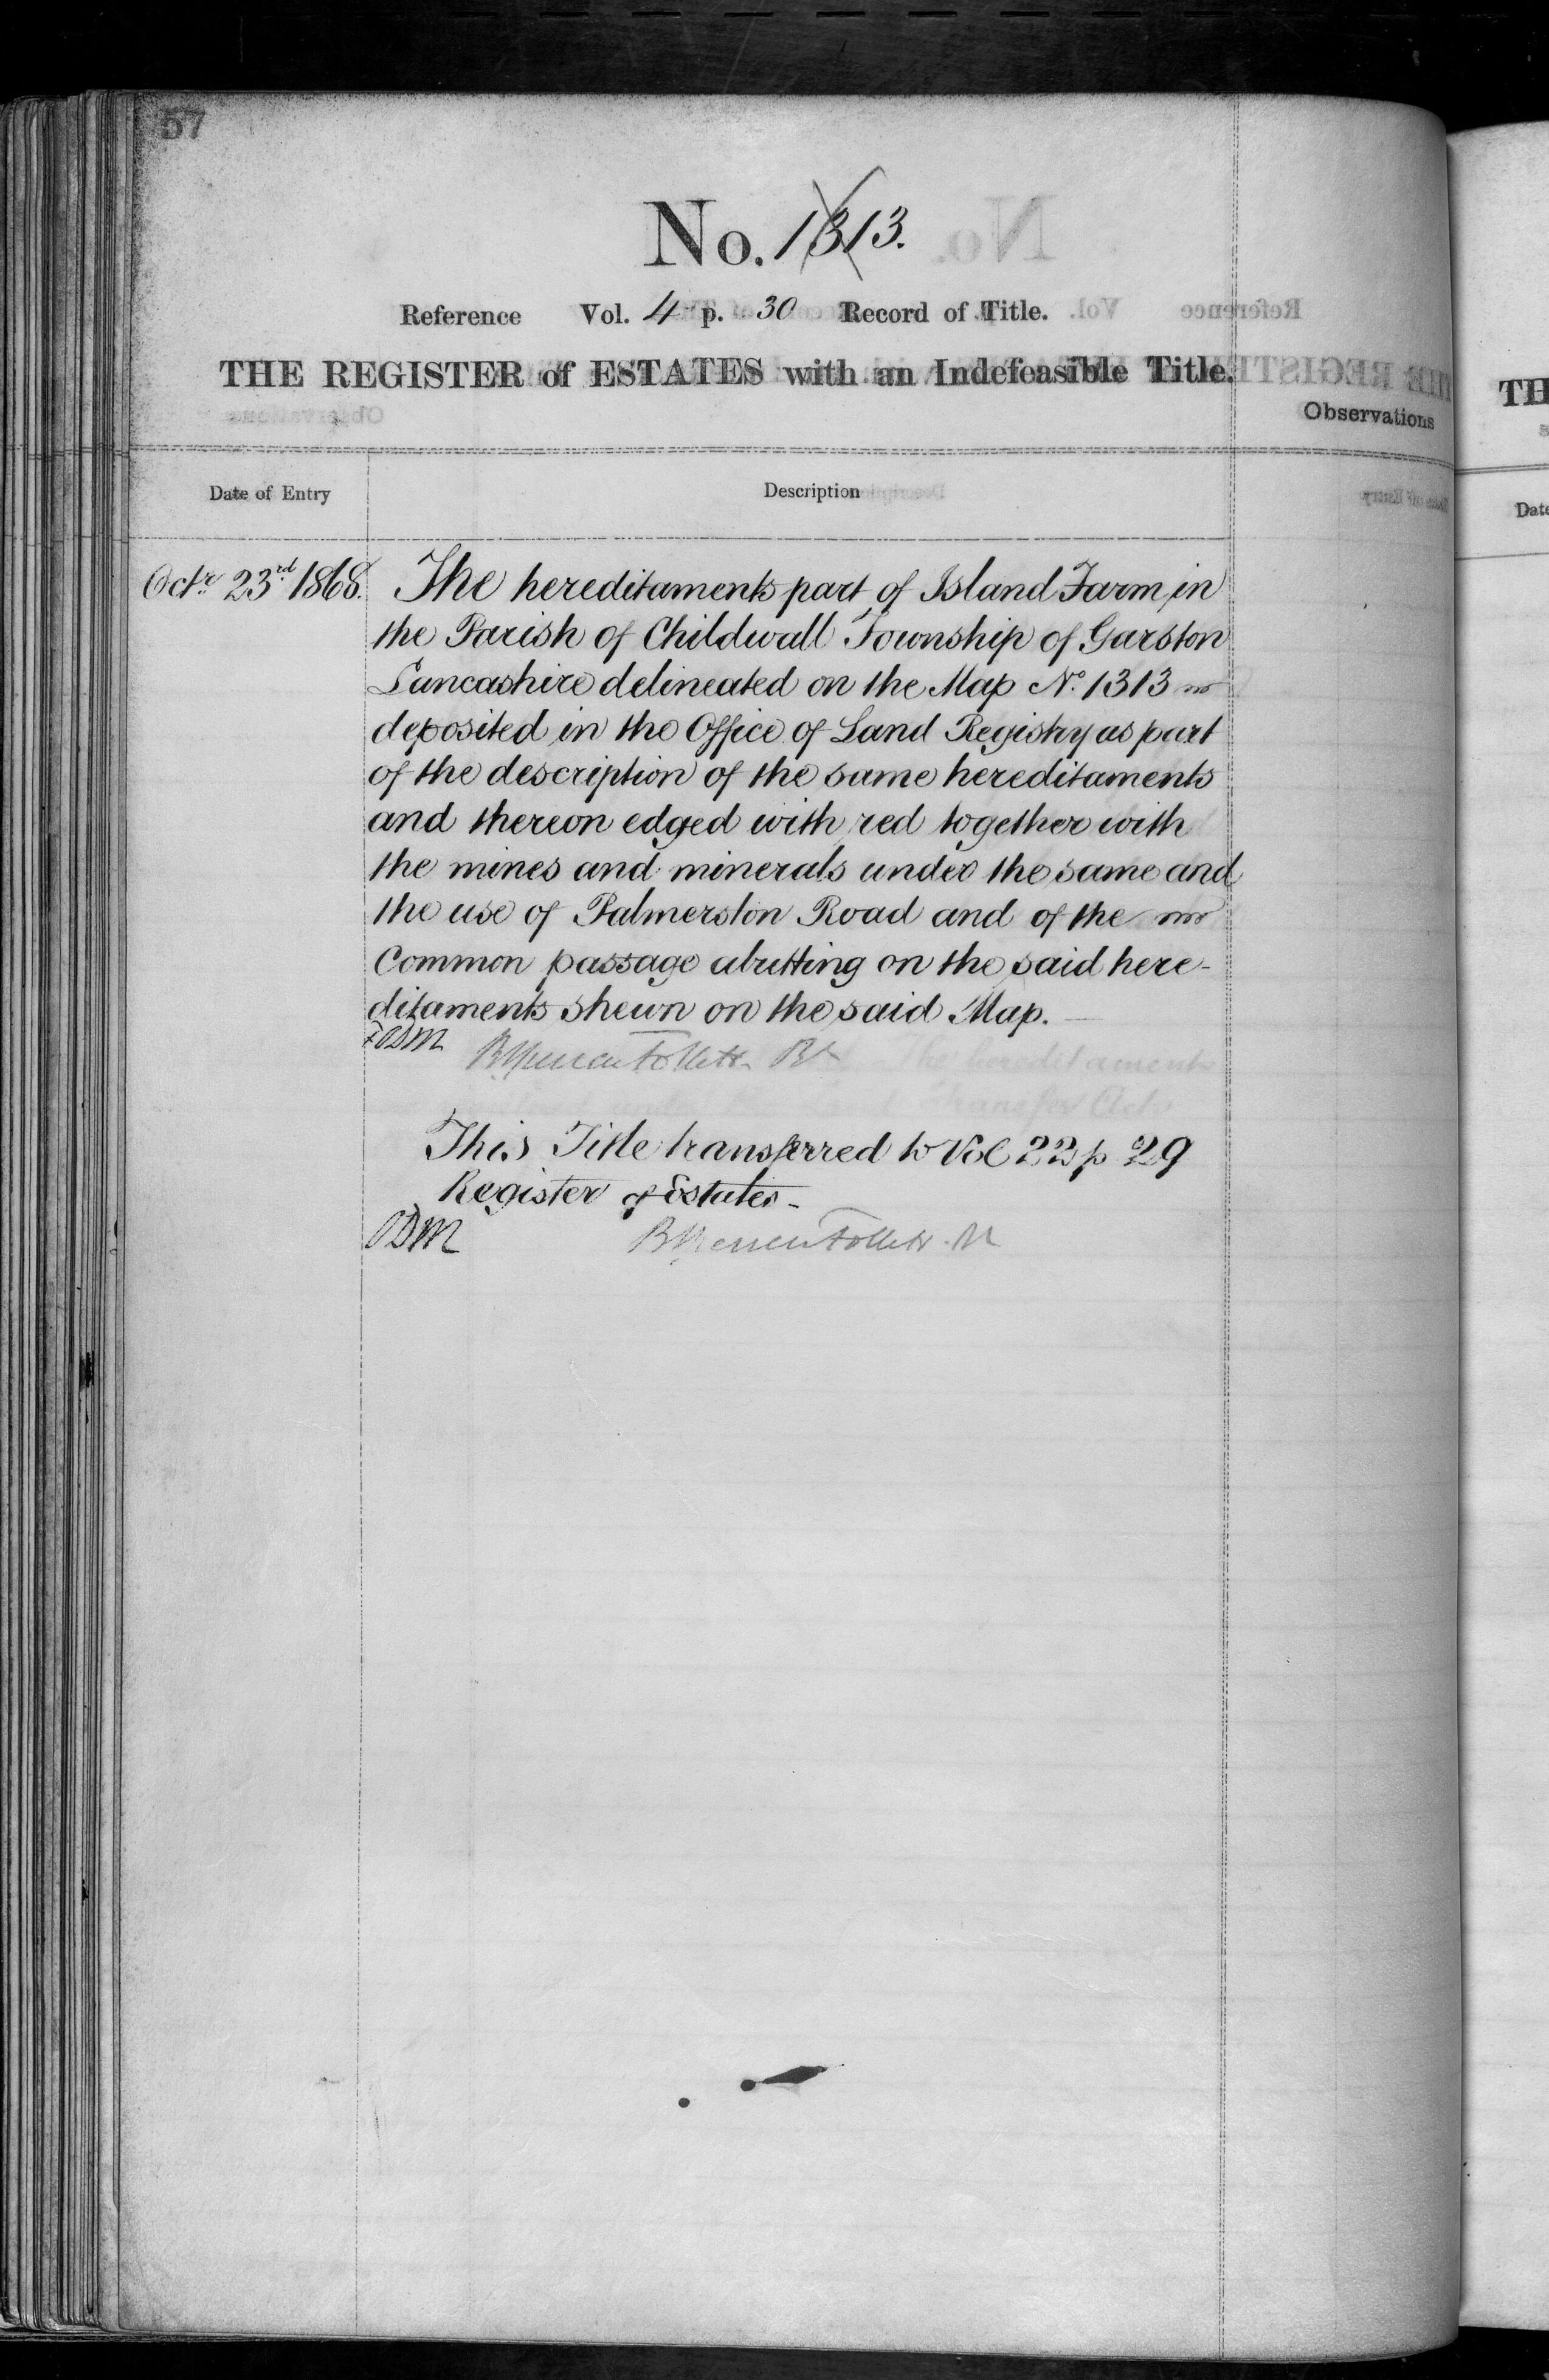 57
No. 1313.
Reference Vol. 4 p. 30 Record of Title.
THE REGISTER of ESTATES with an Indefeasible Title.
Observations
Date of Entry Description
Octr. 23rd 1868. The hereditaments part of Island Farm in
the Parish of Childwall Township of Garston
Lancashire delineated on the Map No. 1313
deposited in the Office of Land Registry as part
of the description of the same hereditaments
and thereon edged with red together with
the mines and minerals under the same and
the use of Palmerston Road and of the
Common passage abutting on the said here-
ditaments shewn on the said Map.
Follett
This Title transferred to Vol 22 p 29
Register of Estates -
Follett
TH
Date